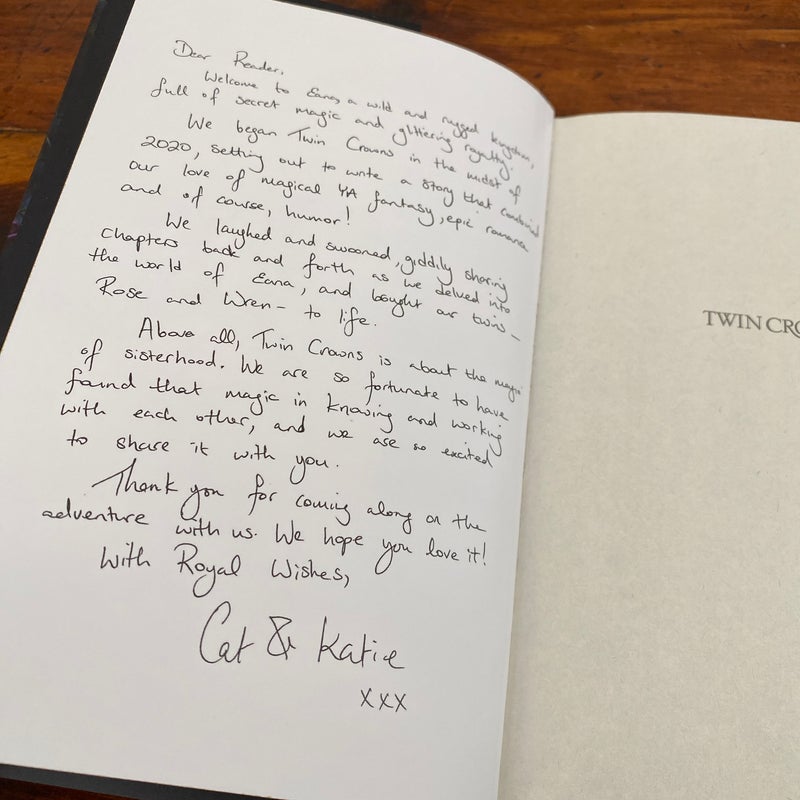 Dear Reader,
Welcome to Eana, a wild and rugged kingdom,
full of secret magic and glittering royalty.
We began Twin Crowns in the midst of
2020, setting out to write a story that combined
our love of magical YA fantasy, epic romance
and of course, humor!
We laughed and swooned, giddily sharing
chapters back and forth as we delved into
the world of Eana, and bought our twins –
Rose and Wren – to life.
Above all, Twin Crowns is about the magic
of sisterhood. We are so fortunate to have
found that magic in knowing and working
with each other, and we are so excited
to share it with you.
Thank you for coming along on the
adventure with us. We hope you love it!
With Royal Wishes,
Cat & Katie
xxx
TWIN CRO